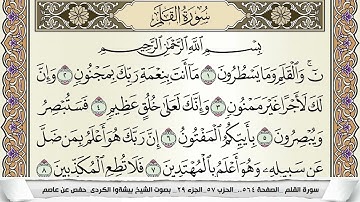 سُورَةُ القَلَمِ
بِسْمِ اللَّهِ الرَّحْمَٰنِ الرَّحِيمِ
نٓ ۚ وَالْقَلَمِ وَمَا يَسْطُرُونَ ١ مَا أَنتَ بِنِعْمَةِ رَبِّكَ بِمَجْنُونٍ ٢ وَإِنَّ
لَكَ لَأَجْرًا غَيْرَ مَمْنُونٍ ٣ وَإِنَّكَ لَعَلَىٰ خُلُقٍ عَظِيمٍ ٤ فَسَتُبْصِرُ
وَيُبْصِرُونَ ٥ بِأَييِّكُمُ الْمَفْتُونُ ٦ إِنَّ رَبَّكَ هُوَ أَعْلَمُ بِمَن ضَلَّ
عَن سَبِيلِهِ وَهُوَ أَعْلَمُ بِالْمُهْتَدِينَ ٧ فَلَا تُطِعِ الْمُكَذِّبِينَ ٨
سورة القلم ..الصفحة ٥٦٤... الحزب ٥٧ ..الجزء ٢٩.. بصوت الشيخ بيشەوا الكردي.. حفص عن عاصم